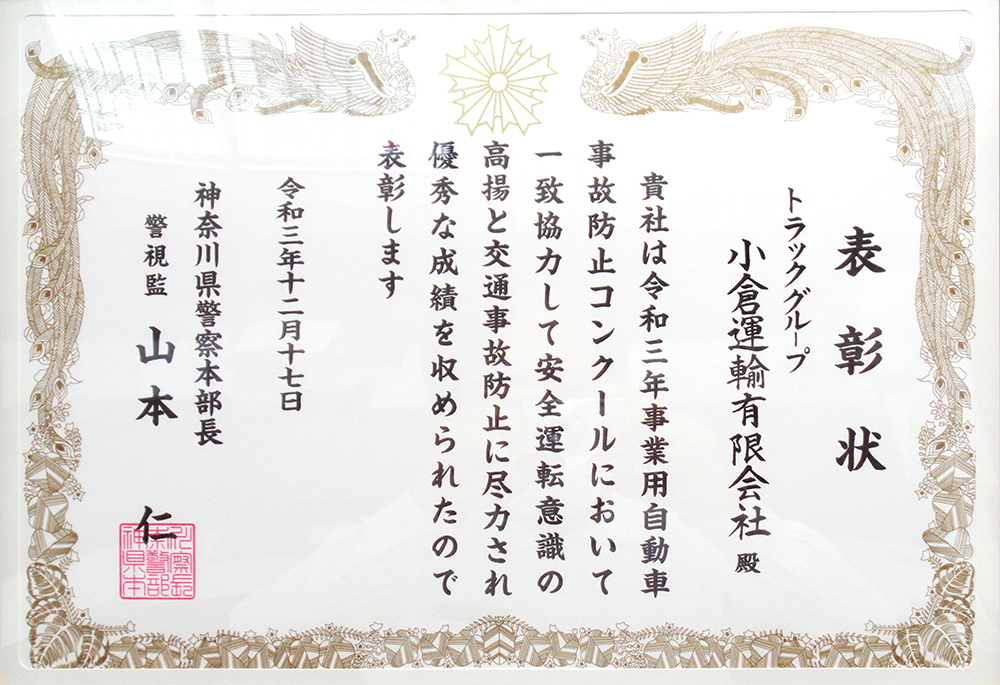 表彰状
トラックグループ
小倉運輸有限会社 殿
貴社は令和三年事業用自動車
事故防止コンクールにおいて
一致協力して安全運転意識の
高揚と交通事故防止に尽力され
優秀な成績を収められたので
表彰します
令和三年十二月十七日
神奈川県警察本部長
警視監 山本 仁